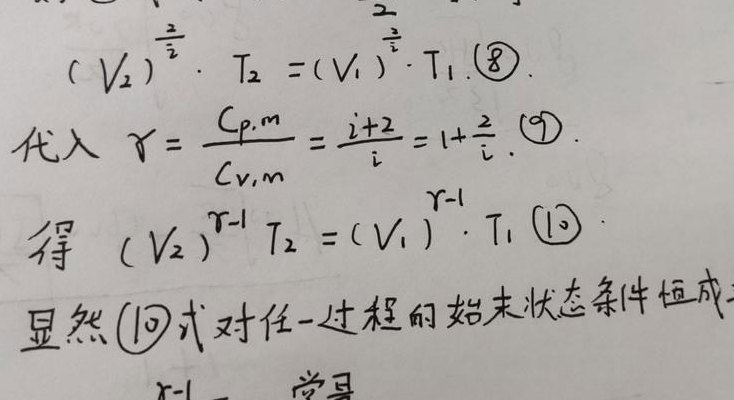 (V₂)^{2/i} · T₂ = (V₁)^{2/i} · T₁.⑧.
代入 γ = C_{p,m}/C_{v,m} = (i+2)/i = 1+2/i.⑨.
得 (V₂)^{γ-1} T₂ = (V₁)^{γ-1} · T₁ ⑩.
显然⑩式对任一过程的始末状态条件恒成
γ-1 常量